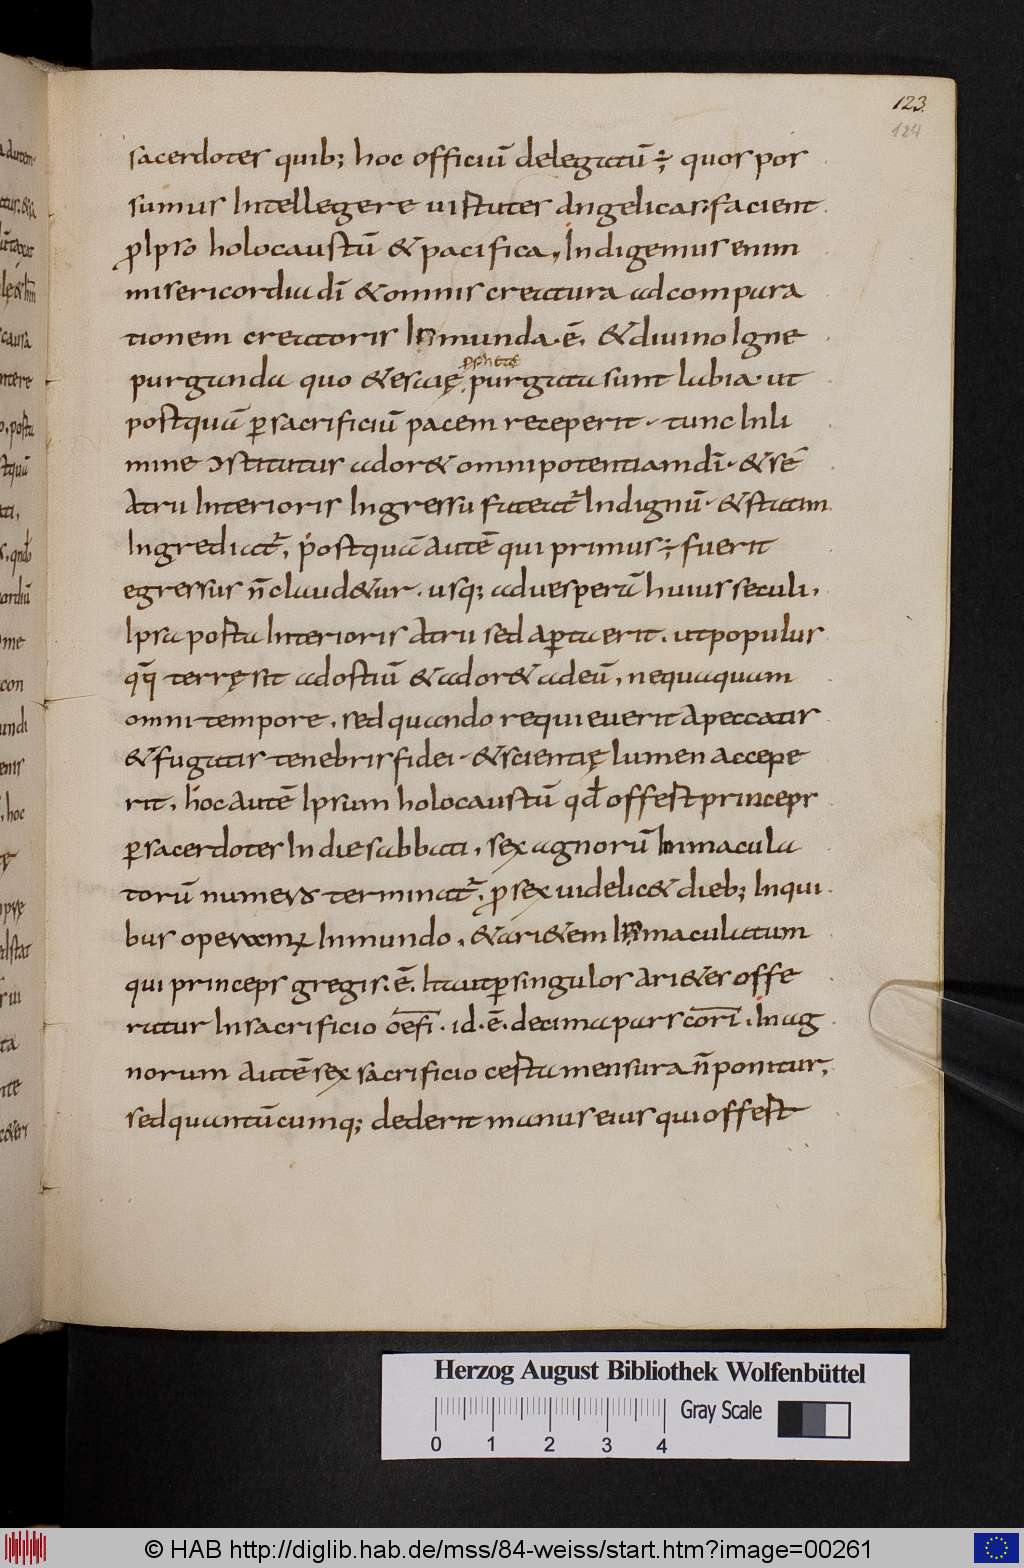 123
124
sacerdotes quib; hoc officiū delegatū ÷; quos pos
sumus Intellegere uirtutes Angelicas; facient
ꝓ Ipso holocaustū & pacifica, Indigemus enim
misericordia dī & omnis creatura ad compara
tionem creatoris Inmunda·ē, & diuino Igne
ꝓphetę
purganda quo & esaię purgata sunt labia· ut
postquā ꝑ sacrificiū pacem receperit· tunc In li
mine ɔstitutus ador& omnipotentiam dī· & sē
Atrii Interioris Ingressu fateat᷑ Indignū· & statim
Ingrediat᷑, postquā autē qui primus ÷ fuerit
egressus n̄ claud&ur· usq; ad uesperā huius seculi,
Ipsa porta Interioris Atrii sed Aperta erit, ut populus
qq̄ terrę sit ad ostiū & ador& ad eū, nequaquam
omni tempore, sed quando requieuerit A peccatis
& fugatis tenebris fidei· & scientię lumen accepe
rit, hoc Autē Ipsum holocaustū qđ offert princeps
ꝑ sacerdotes In die sabbati, sex agnorū Inmacula
torū numerus terminat᷑, ꝓ sex uidelic& dieb; In qui
bus operamur In mundo, & ari&em Inmaculatum
qui princeps gregis·ē, Ita ut ꝑ singulos Ari&es offe
ratur In sacrificio oefī· id·ē· decima pars corī, In ag
norum Autē sex sacrificio certa mensura n̄ ponitur,
sed quantūcumq; dederit manus eius qui offert
Herzog August Bibliothek Wolfenbüttel
Gray Scale
0 1 2 3 4
© HAB http://diglib.hab.de/mss/84-weiss/start.htm?image=00261